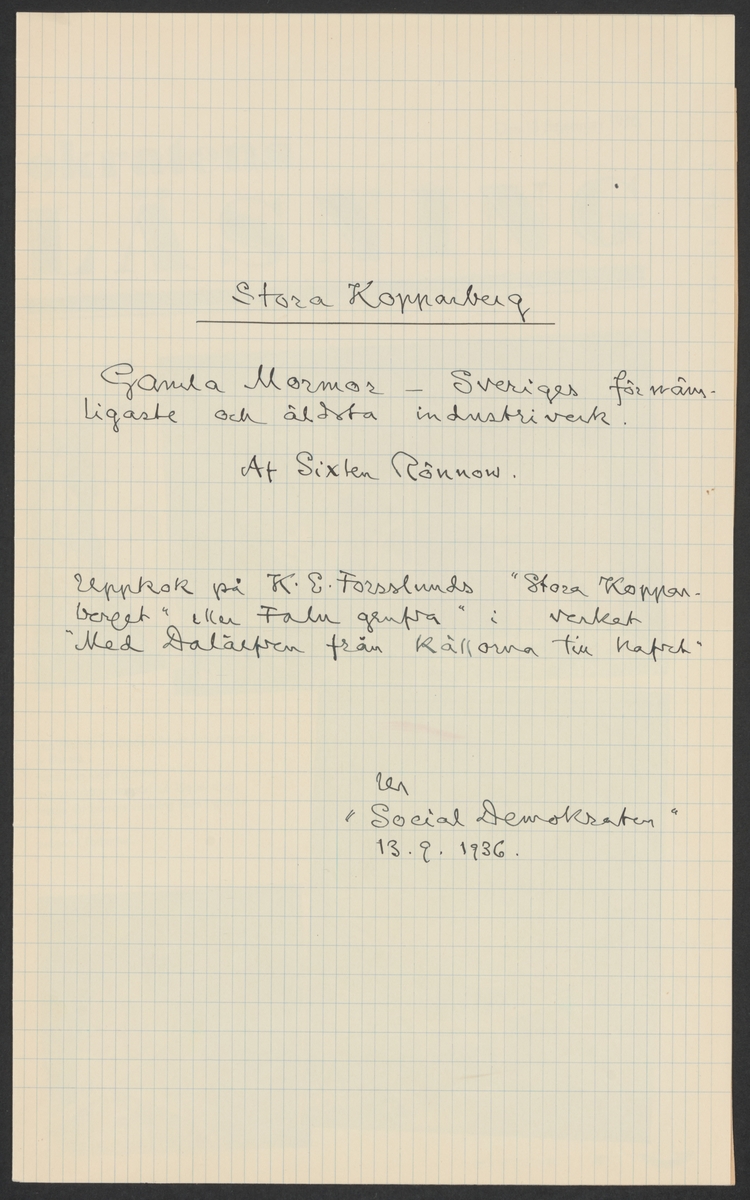 Stora Kopparberg
Gamla Mormor – Sveriges förnäm-
ligaste och äldsta industriverk.
Af Sixten Rönnow.
Uppkok på K. E. Forsslunds "Stora Koppar-
berget" eller Falu grufva" i verket
"Med Dalälfven från källorna till hafvet"
Ur
"Social Demokraten"
13. 9. 1936.